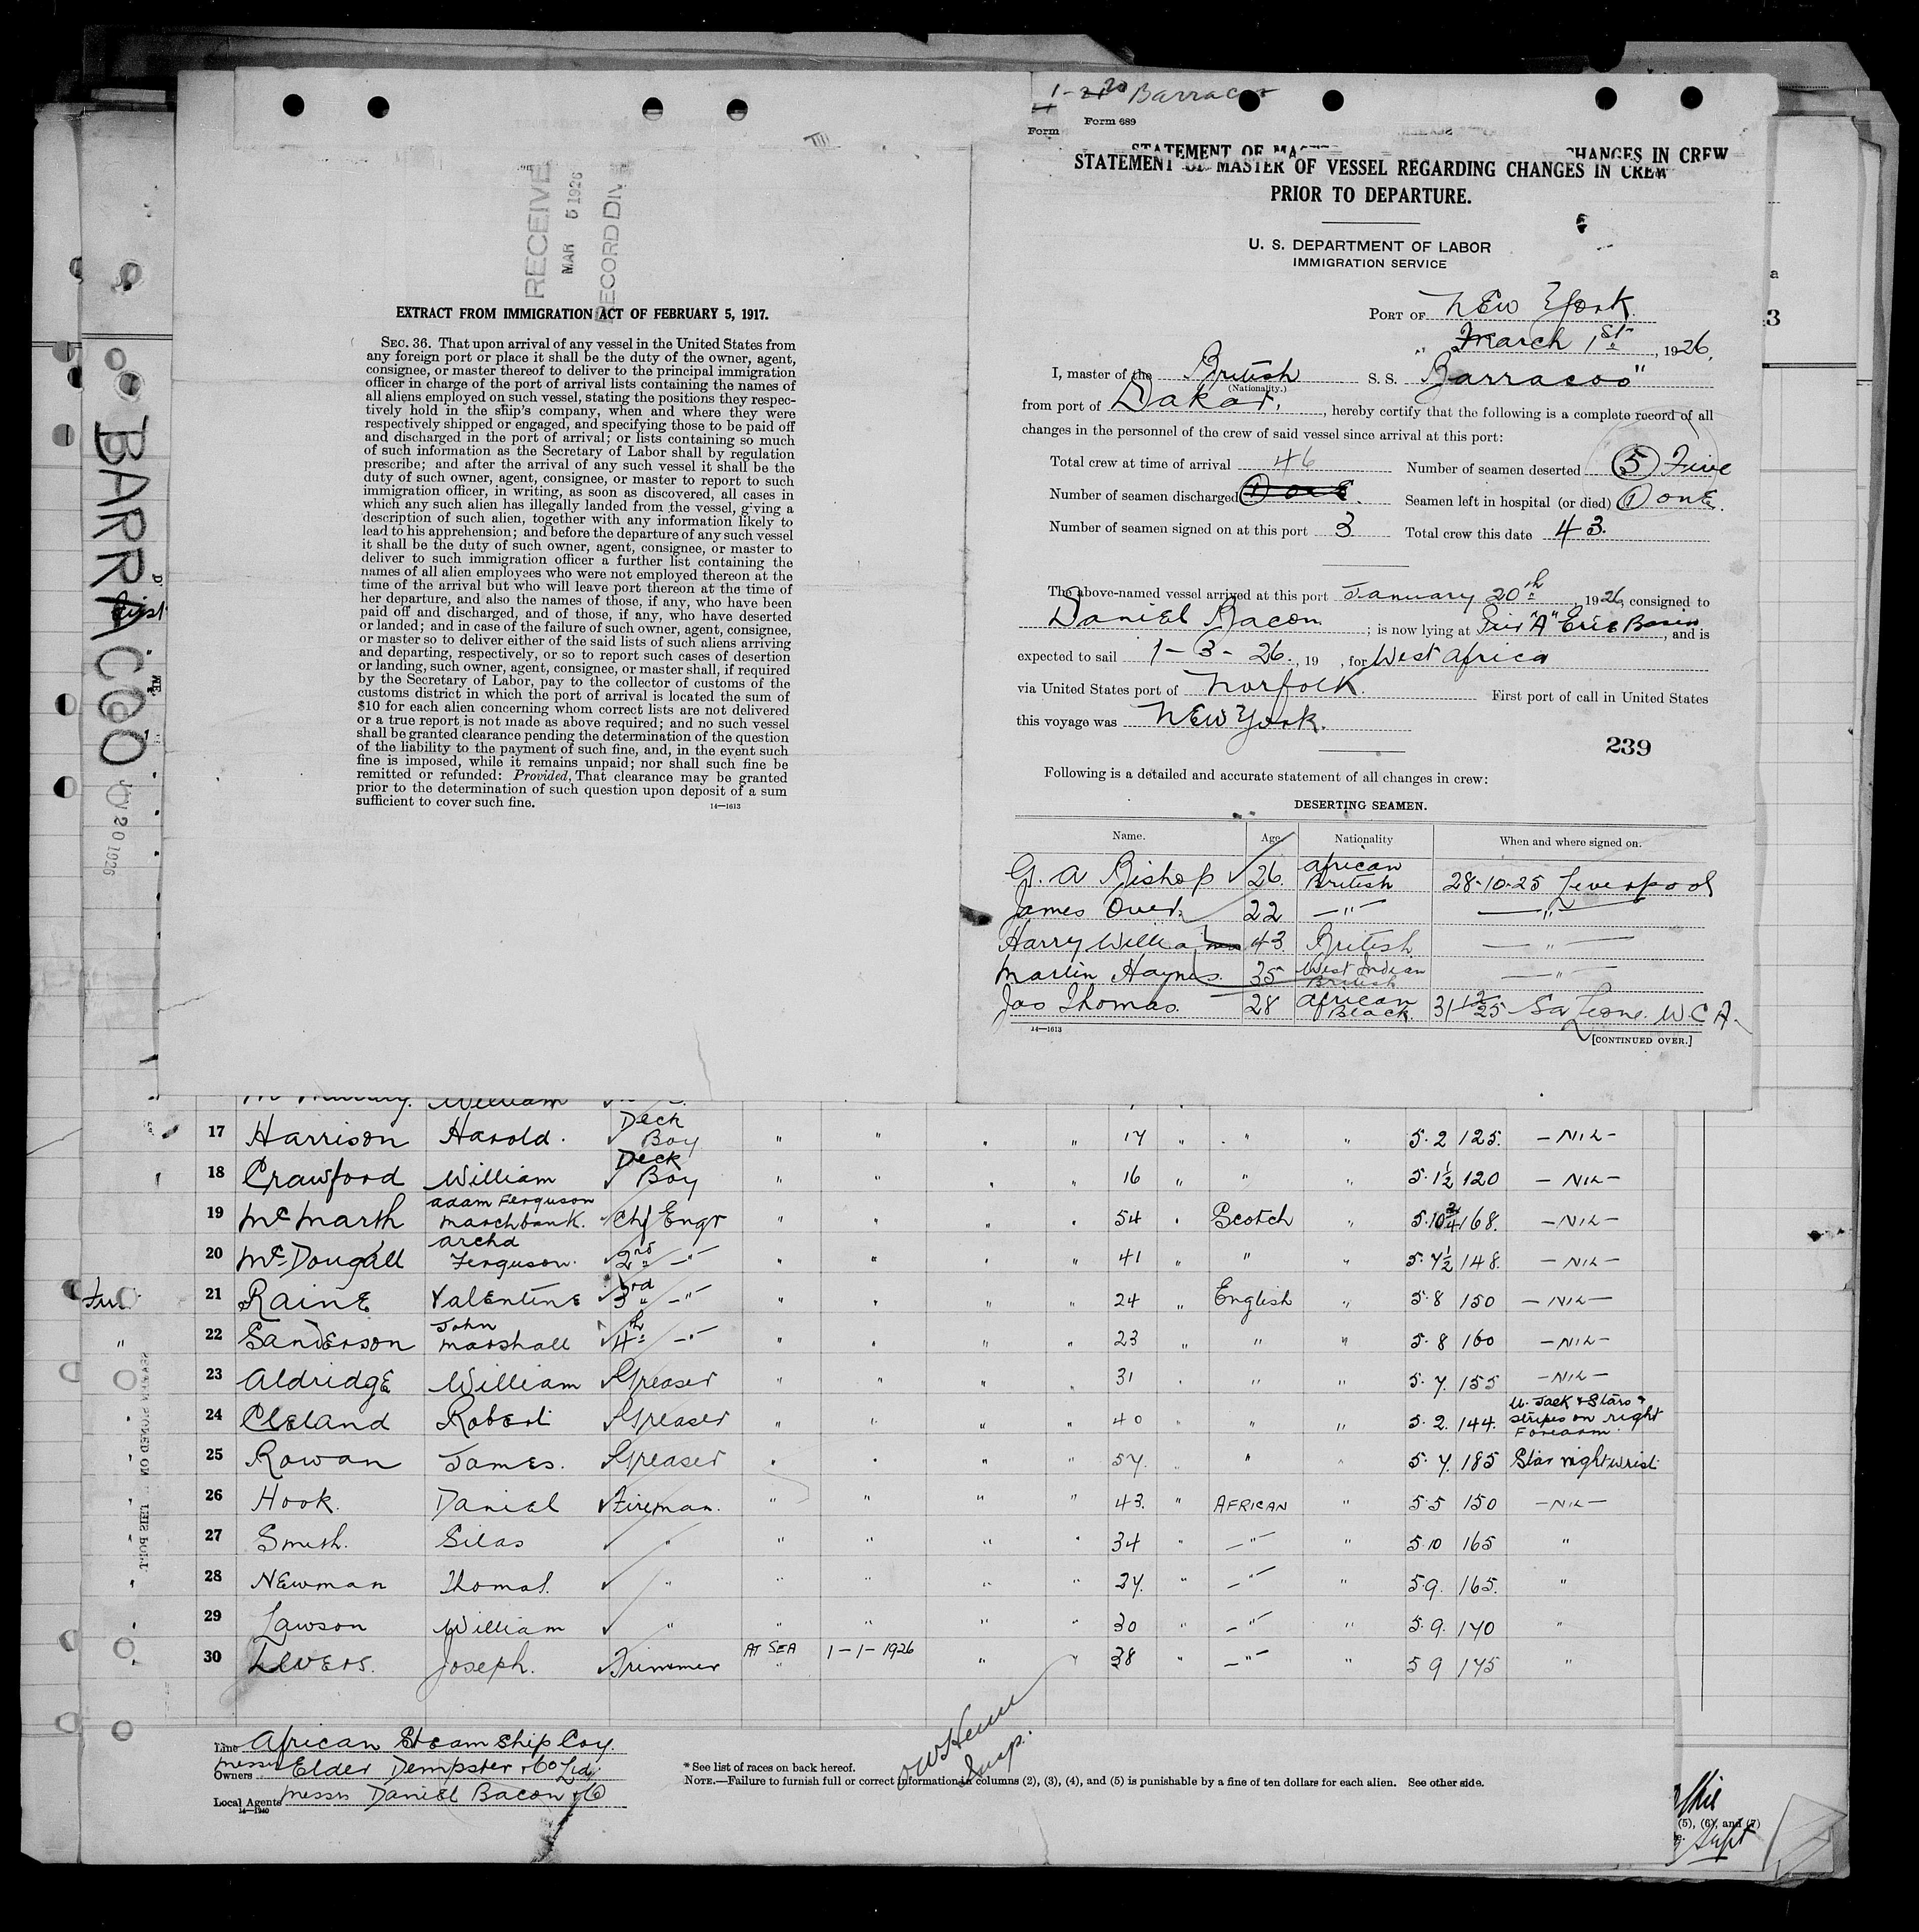 BARRACOO
JAN 20 1926
RECEIVE
MAR 5 1926
RECORD DIV
EXTRACT FROM IMMIGRATION ACT OF FEBRUARY 5, 1917.
SEC. 36. That upon arrival of any vessel in the United States from
any foreign port or place it shall be the duty of the owner, agent,
consignee, or master thereof to deliver to the principal immigration
officer in charge of the port of arrival lists containing the names of
all aliens employed on such vessel, stating the positions they respec-
tively hold in the ship's company, when and where they were
respectively shipped or engaged, and specifying those to be paid off
and discharged in the port of arrival; or lists containing so much
of such information as the Secretary of Labor shall by regulation
prescribe; and after the arrival of any such vessel it shall be the
duty of such owner, agent, consignee, or master to report to such
immigration officer, in writing, as soon as discovered, all cases in
which any such alien has illegally landed from the vessel, giving a
description of such alien, together with any information likely to
lead to his apprehension; and before the departure of any such vessel
it shall be the duty of such owner, agent, consignee, or master to
deliver to such immigration officer a further list containing the
names of all alien employees who were not employed thereon at the
time of the arrival but who will leave port thereon at the time of
her departure, and also the names of those, if any, who have been
paid off and discharged, and of those, if any, who have deserted
or landed; and in case of the failure of such owner, agent, consignee,
or master so to deliver either of the said lists of such aliens arriving
and departing, respectively, or so to report such cases of desertion
or landing, such owner, agent, consignee, or master shall, if required
by the Secretary of Labor, pay to the collector of customs of the
customs district in which the port of arrival is located the sum of
$10 for each alien concerning whom correct lists are not delivered
or a true report is not made as above required; and no such vessel
shall be granted clearance pending the determination of the question
of the liability to the payment of such fine, and, in the event such
fine is imposed, while it remains unpaid; nor shall such fine be
remitted or refunded: Provided, That clearance may be granted
prior to the determination of such question upon deposit of a sum
sufficient to cover such fine.
14—1613
Barracoo
Form Form 689
STATEMENT OF MASTER OF VESSEL REGARDING CHANGES IN CREW
PRIOR TO DEPARTURE.
U. S. DEPARTMENT OF LABOR
IMMIGRATION SERVICE
PORT OF New York
March 1st, 1926.
I, master of the British S. S. Barracoo"
(Nationality.)
from port of Dakar, hereby certify that the following is a complete record of all
changes in the personnel of the crew of said vessel since arrival at this port:
Total crew at time of arrival 46 Number of seamen deserted (5) Five
Number of seamen discharged (1) one. Seamen left in hospital (or died) (1) one.
Number of seamen signed on at this port 3 Total crew this date 43.
The above-named vessel arrived at this port January 20th, 1926, consigned to
Daniel Bacon; is now lying at Pier "A" Erie Basin, and is
expected to sail 1-3-26., 19 , for West Africa
via United States port of Norfolk. First port of call in United States
this voyage was New York.
239
Following is a detailed and accurate statement of all changes in crew:
DESERTING SEAMEN.
Name. Age Nationality When and where signed on.
G. A Bishop 26. African British 28-10-25 Liverpool
James Over. 22 —"— —"—
Harry Williams 43 British —"—
Martin Haynes. 35 West Indian British —"—
Jas Thomas. 28 African Black. 31 12/25 Sa Leone. W. C A.
14—1613
[CONTINUED OVER.]
William
17 Harrison Harold. Deck Boy " " " " 17 " " " 5.2 125. —NIL—
18 Crawford William Deck Boy " " " " 16 " " " 5.1½ 120 —NIL—
19 McMarth Adam Ferguson Marchbank. Chf Engr " " " " 54 " Scotch " 5.10¾ 168. —NIL—
20 McDougall Archd Ferguson. 2nd —"— " " " " 41 " " " 5.7½ 148. —NIL—
21 Raine Valentine 3rd —"— " " " " 24 " English " 5.8 150 —NIL—
22 Sanderson John Marshall 4th —"— " " " " 23 " " " 5.8 160 —NIL—
23 Aldridge William Greaser " " " " 31 " " " 5.7. 155 —NIL—
24 Cleland Robert Greaser " " " " 40 " " " 5.2. 144. U. Jack & Stars & stripes on right Forearm.
25 Rowan James. Greaser " " " " 57. " " " 5.7. 185 Star right wrist
26 Hook. Danial Fireman. " " " " 43. " AFRICAN " 5.5 150 —NIL—
27 Smith. Silas " " " " " 34 " —"— " 5.10 165 "
28 Newman Thomas. " " " " " 27. " —"— " 5.9. 165. "
29 Lawson William " " " " " 30 " —"— " 5.9. 170 "
30 Joseph. Trimmer AT SEA 1-1-1926 " " 38 " —"— " 5 9 175 "
Line African Steam Ship Coy.
Owners Messrs Elder Dempster & Co Ltd.
Local Agents Messrs Daniel Bacon & Co
14—1240
* See list of races on back hereof.
NOTE.—Failure to furnish full or correct information in columns (2), (3), (4), and (5) is punishable by a fine of ten dollars for each alien. See other side.
Insp.
(5), (6), and (7)